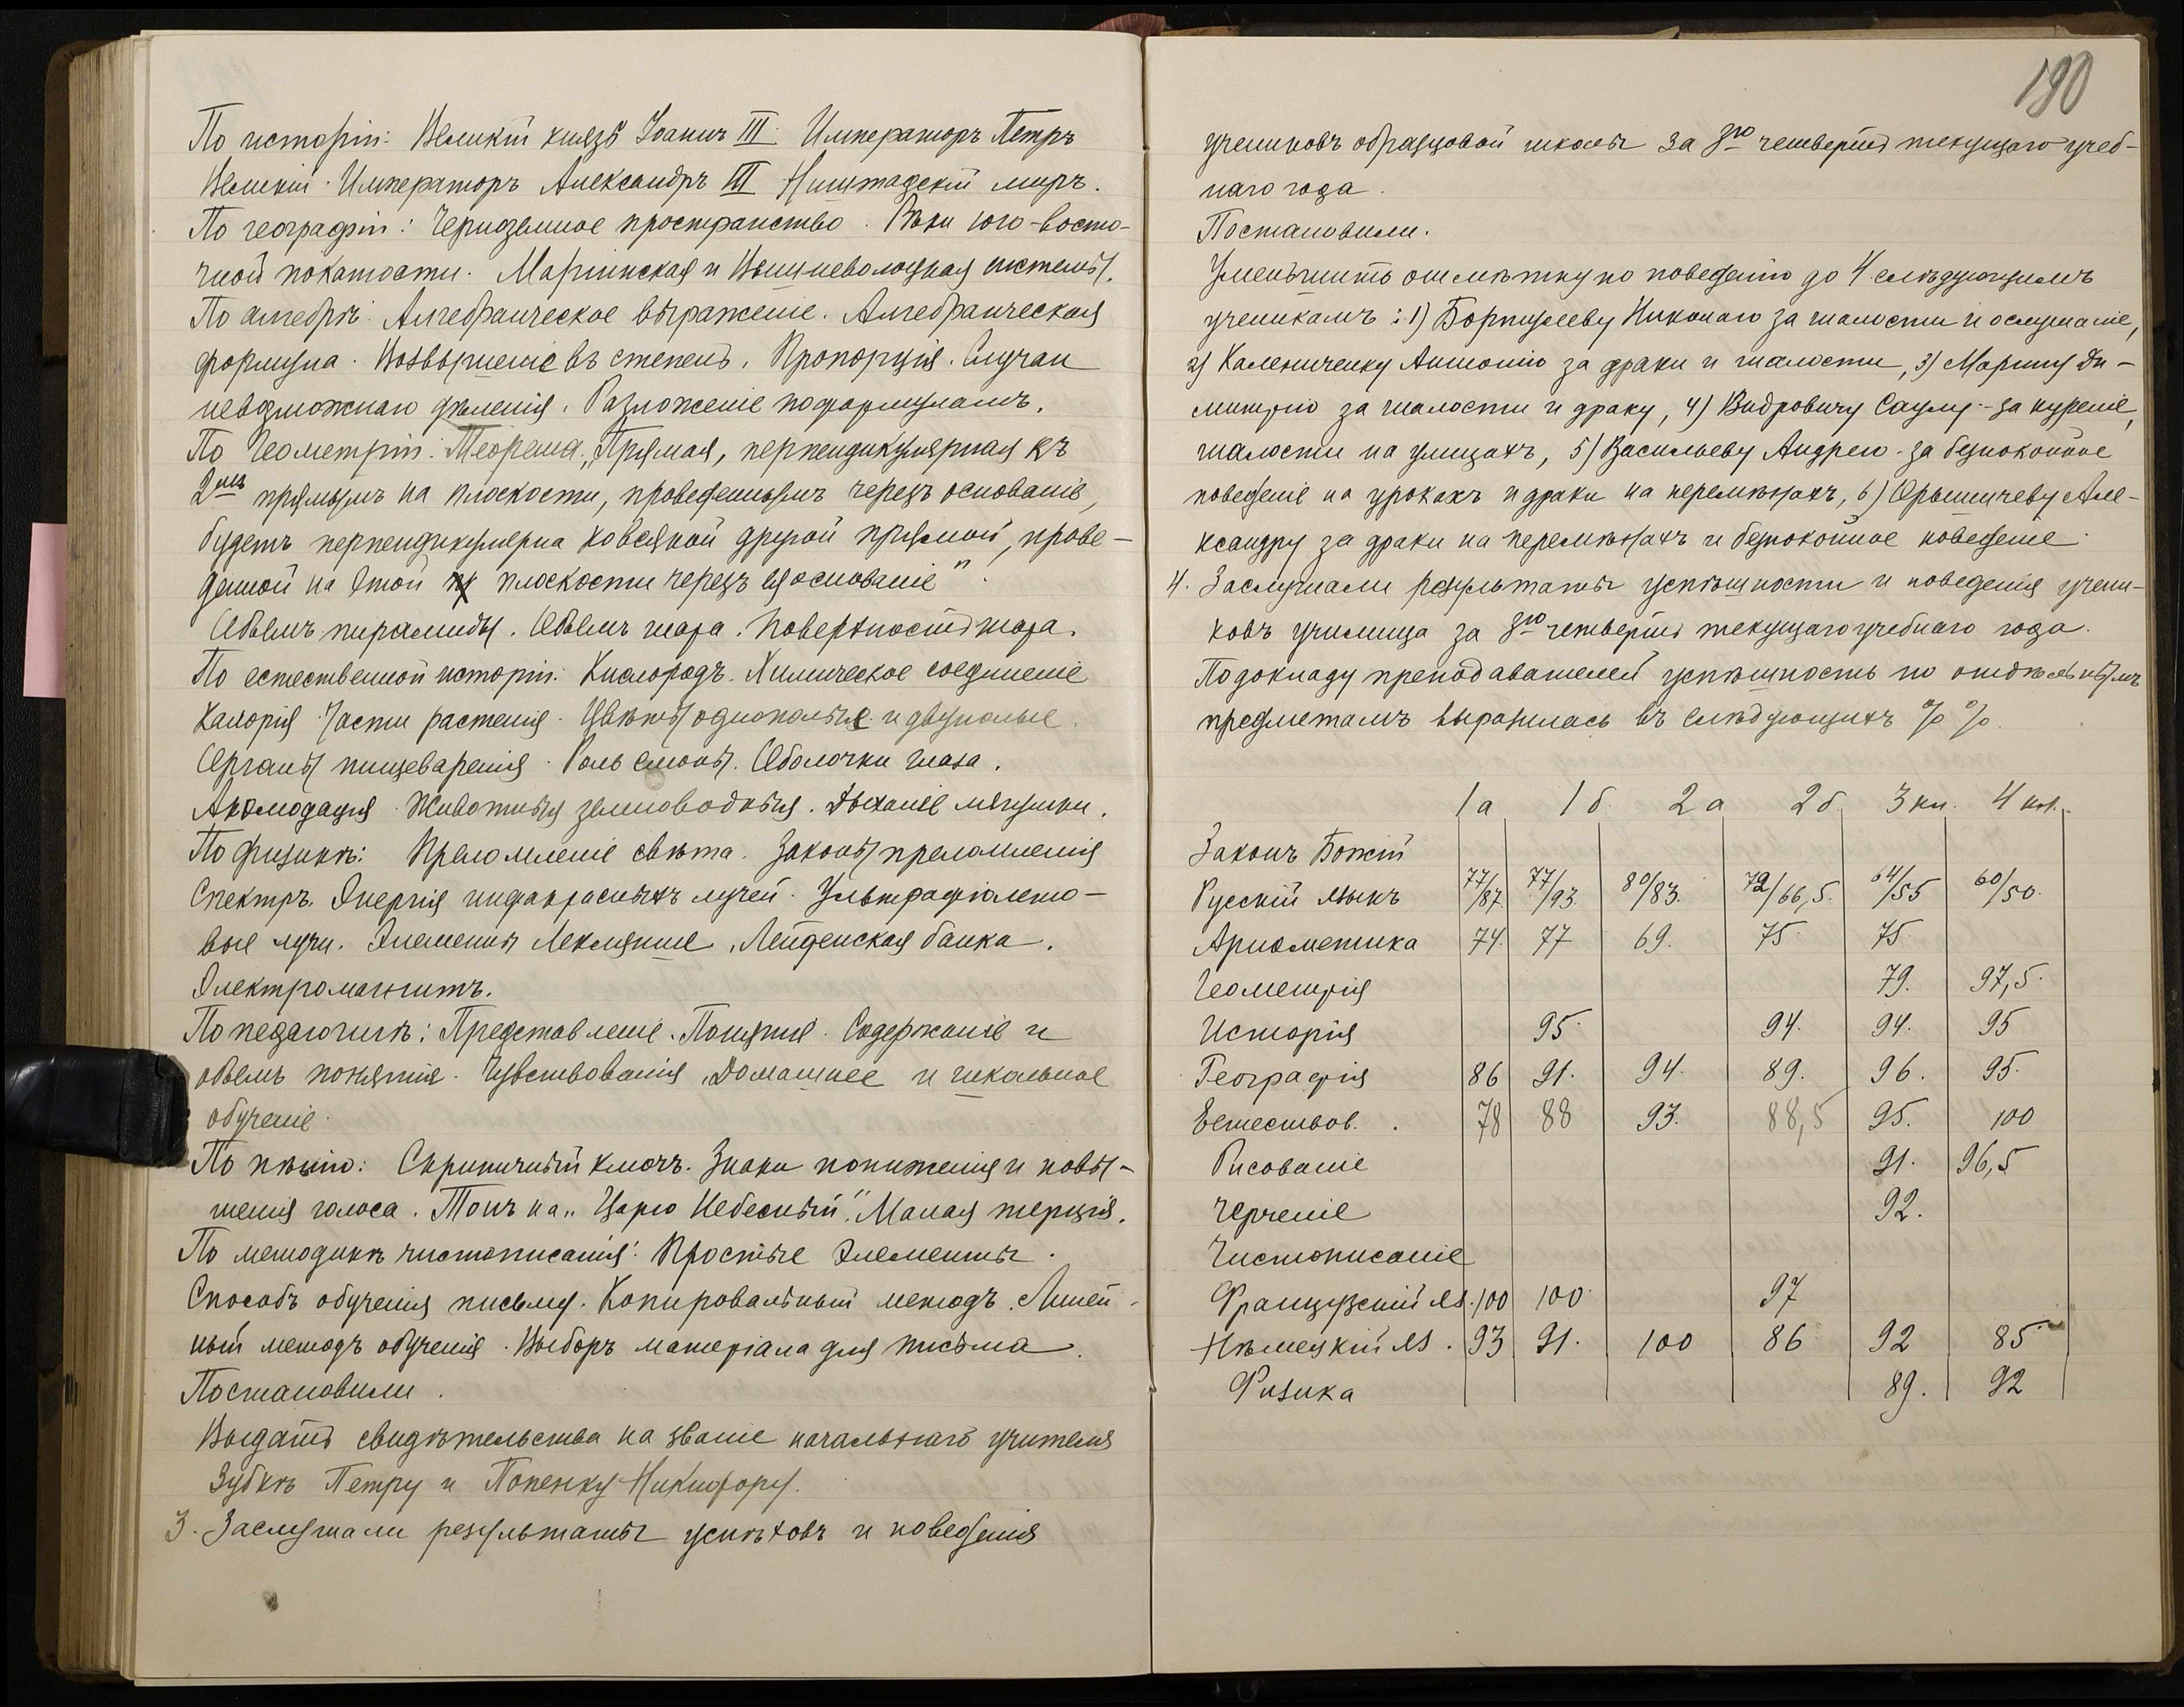 По исторіи: Великій князь Іоаннъ III. Императоръ Петръ
Великій. Императоръ Александръ III Ништадскій миръ.
По географіи: Черноземное пространство. Рѣки юго-восто-
чной покатости. Маріинская и Вышневолоцкая системы.
По алгебрѣ: Алгебраическое выраженіе. Алгебраическая
формула. Возвышеніе въ степень. Пропорція. Случаи
невозможнаго дѣленія. Разложеніе по формуламъ.
По Геометріи: Теорема: „Прямая, перпендикулярная къ
2мъ прямымъ на плоскости, проведеннымъ черезъ основаніе,
будетъ перпендикулярна ко всякой другой прямой, прове-
денной на этой плоскости черезъ ея основаніе".
Объемъ пирамиды. Объемъ шара. Поверхность шара.
По естественной исторіи: Кислородъ. Химическое соединеніе
Калорія. Части растенія. Цвѣты однополые и двуполые.
Органы пищеваренія. Роль слюны. Оболочки глаза.
Акомодація. Животныя земноводныя. Дыханіе лягушки.
По физикѣ: Преломленіе свѣта. Законы преломленія
Спектръ. Энергія инфакрасныхъ лучей. Ультрафіолето-
вые лучи. Элементъ Лекланше. Лейденская банка.
Электромагнитъ.
По педагогикѣ: Представленіе. Понятіе. Содержаніе и
объемъ понятія. Чувствованія. Домашнее и школьное
обученіе.
По пѣнію: Скрипичный ключъ. Знаки пониженія и повы-
шенія голоса. Тонъ на „Царю Небесный". Малая терція.
По методикѣ чистописанія: Простые элементы.
Способъ обученія письму. Копировальный методъ. Линей-
ный методъ обученія. Выборъ матеріала для письма.
Постановили.
Выдать свидѣтельства на званіе начальнаго учителя
Зубкѣ Петру и Попенку Никифору.
3. Заслушали результаты успѣховъ и поведенія
190
учениковъ образцовой школы за 3ю четверть текущаго учеб-
наго года.
Постановили.
Уменьшить отмѣтку по поведенію до 4 слѣдующимъ
ученикамъ: 1) Николаю за шалости и ослушаніе,
2) Калениченку Антонію за драки и шалости, 3) Ди-
митрію за шалости и драку, 4) Видровичу Саулу - за куреніе,
шалости на улицахъ, 5) Васильеву Андрею - за безпокойное
поведеніе на урокахъ и драки на перемѣнахъ, 6) Але-
ксандру за драки на перемѣнахъ и безпокойное поведеніе.
4. Заслушали результаты успѣшности и поведенія учени-
ковъ училища за 3ю четверть текущаго учебнаго года.
По докладу преподавателей успѣшность по отдѣльнымъ
предметамъ выразилась въ слѣдующихъ % %.
1а 1б. 2а 2б. 3 кл. 4 кл.
Законъ Божій
Русскій языкъ 77/87. 77/93. 80/83. 72/66,5. 64/55 60/50.
Ариѳметика 74. 77 69. 75. 75
Геометрія 79. 97,5.
Исторія 95. 94. 94. 95
Географія 86 91. 94. 89. 96. 95.
Естествов. 78 88 93. 88,5 95. 100
Рисованіе 91. 96,5
Черченіе 92.
Чистописаніе
Французскій яз. 100 100. 97
Нѣмецкій яз. 93 91. 100 86 92 85
Физика 89. 92